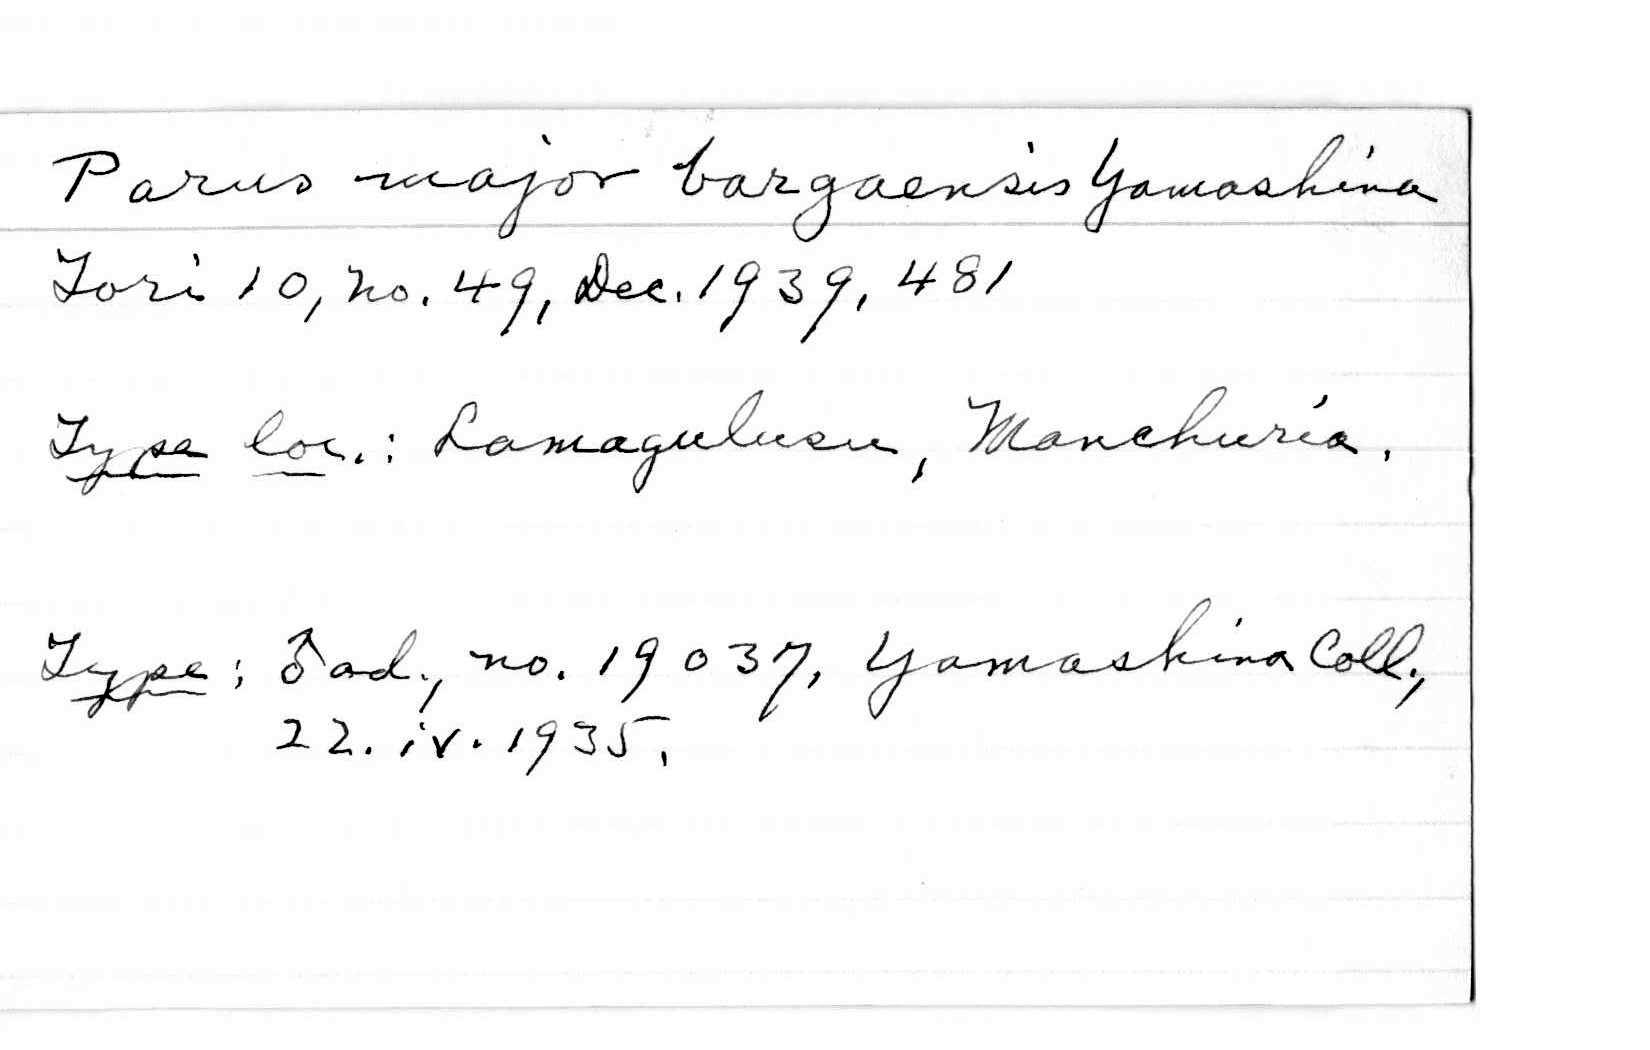 Parus major bargaensis Yamashina
Tori 10, no. 49, Dec. 1939, 481
Type loc.: Lamagulusu, Manchuria.
Type: ♂ ad., no. 19037, Yamashina Coll.,
22.iv.1935.